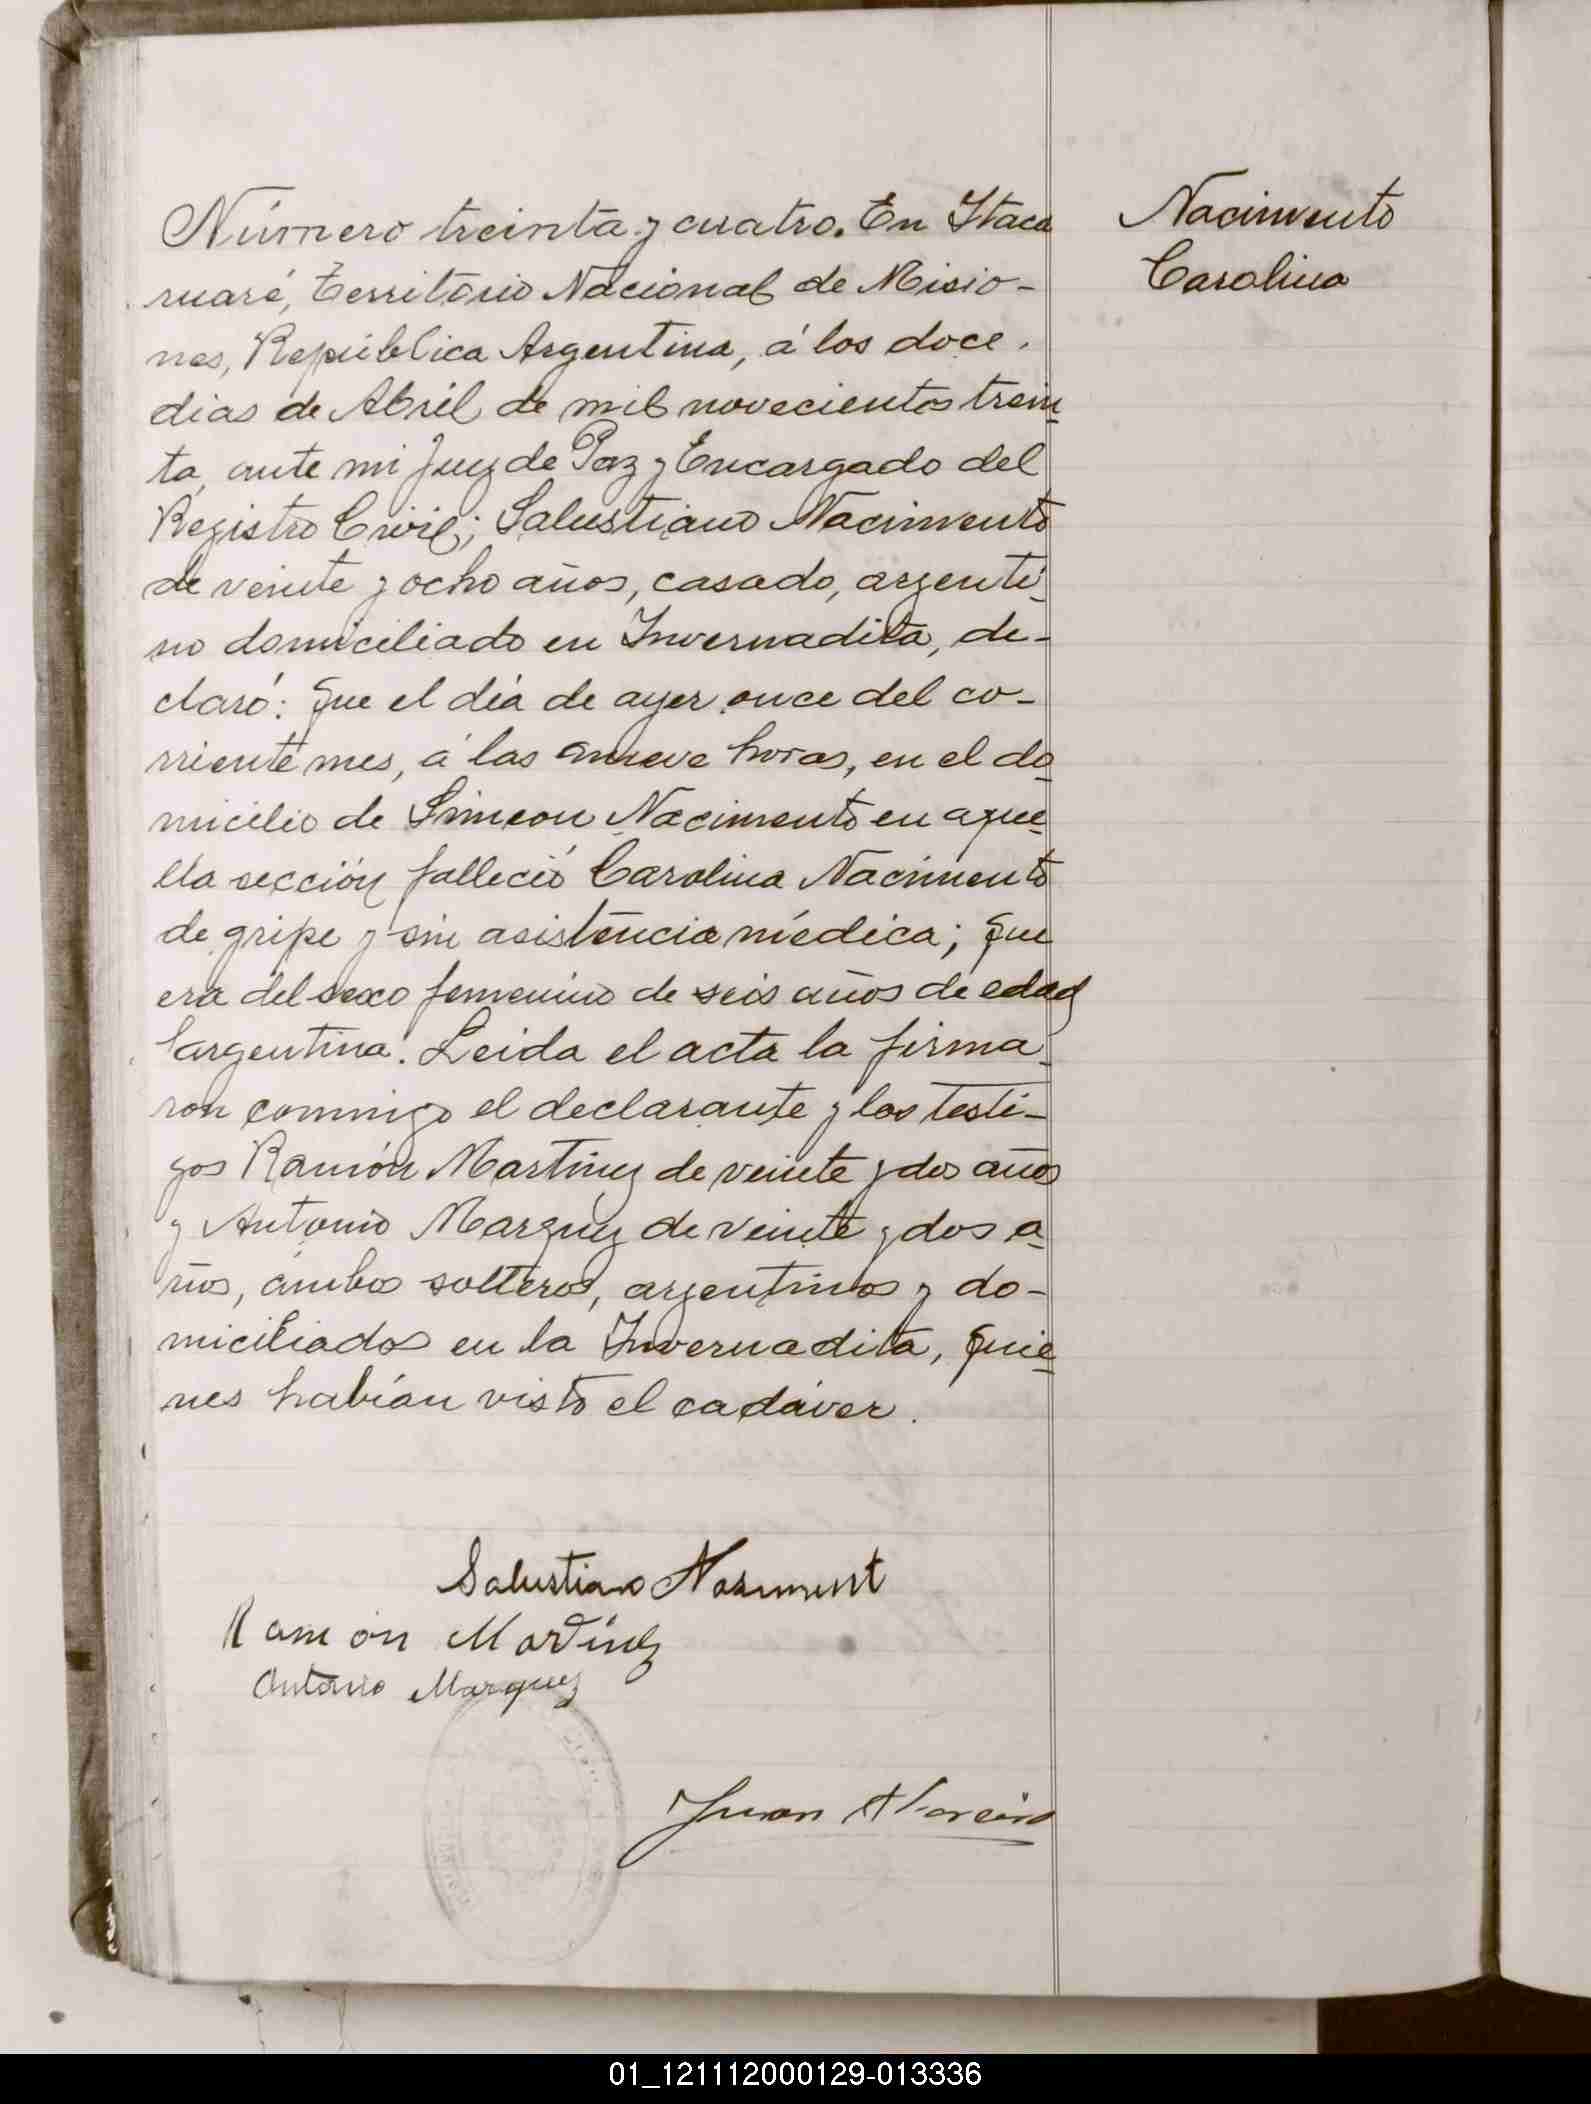 Número treinta y cuatro. En Itaca
ruaré, Territorio Nacional de Misio-
nes, República Argentina, á los doce
dias de Abril de mil novecientos trein
ta, ante mi Juez de Paz y Encargado del
Registro Civil; Salustiano Nacimento
de veinte y ocho años, casado, argenti-
no domiciliado en Invernadita, de-
claró: Que el día de ayer once del co-
rriente mes, á las nueve horas, en el do
micilio de Simeon Nacimento en aque
lla sección falleció Carolina Nacimento
de gripe y sin asistencia médica; que
era del sexo femenino de seis años de edad
argentina. Leida el acta la firma
ron conmigo el declarante y los testi-
gos Ramón Martínez de veinte y dos años
y Antonio Marquez de veinte y dos a
ños, ámbos solteros, argentinos y do-
miciliados en la Invernadita, quie
nes habían visto el cadáver.
Nacimento
Carolina
Salustiano
Ramón Martínez
Antonio Marquez
Juan
01_121112000129-013336